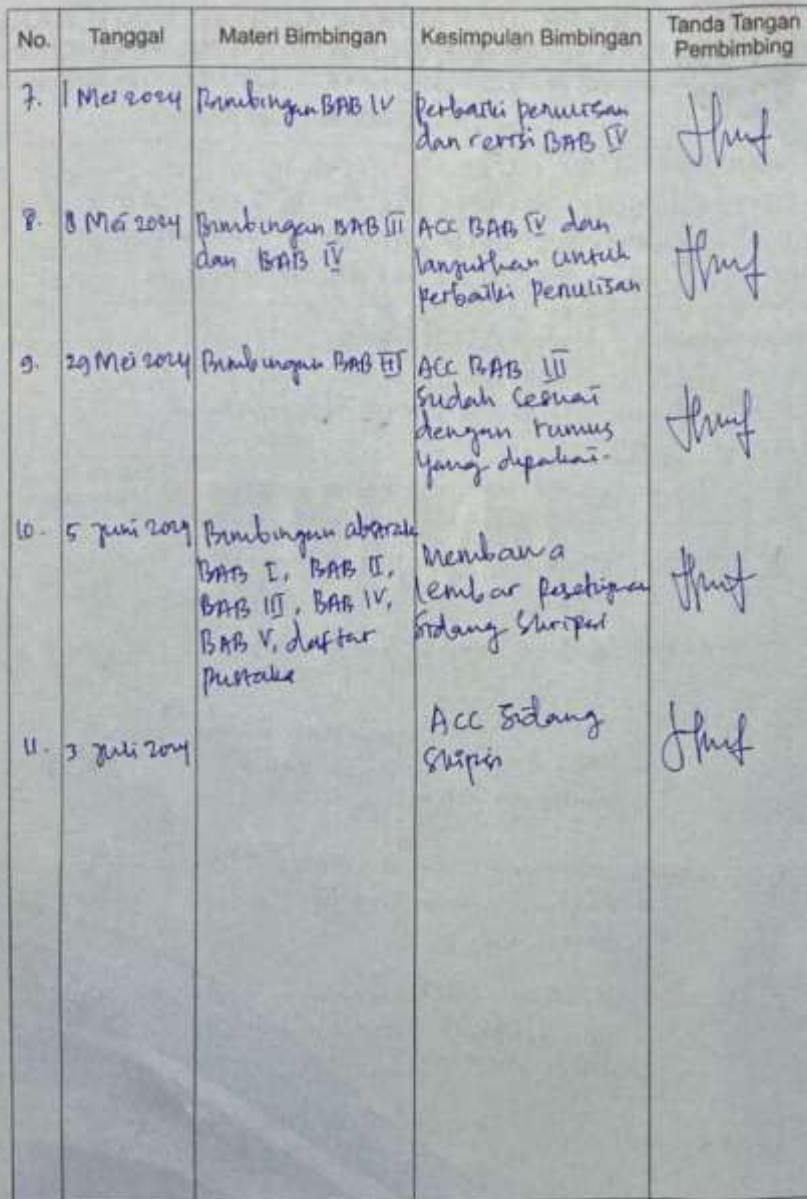 No. Tanggal Materi Bimbingan Kesimpulan Bimbingan Tanda Tangan
Pembimbing
7. 1 Mei 2024 Bimbingan BAB IV Perbaiki penulisan
dan revisi BAB IV
8. 8 Mei 2024 Bimbingan BAB III ACC BAB IV dan
dan BAB IV lanjutkan untuk
perbaiki penulisan
9. 29 Mei 2024 Bimbingan BAB III ACC BAB III
sudah sesuai
dengan rumus
yang dipakai.
10. 5 Juni 2024 Bimbingan abstrak
BAB I, BAB II, Membawa
BAB III, BAB IV, lembar
BAB V, daftar sidang skripsi
pustaka
11. 3 Juli 2024 ACC Sidang
skripsi